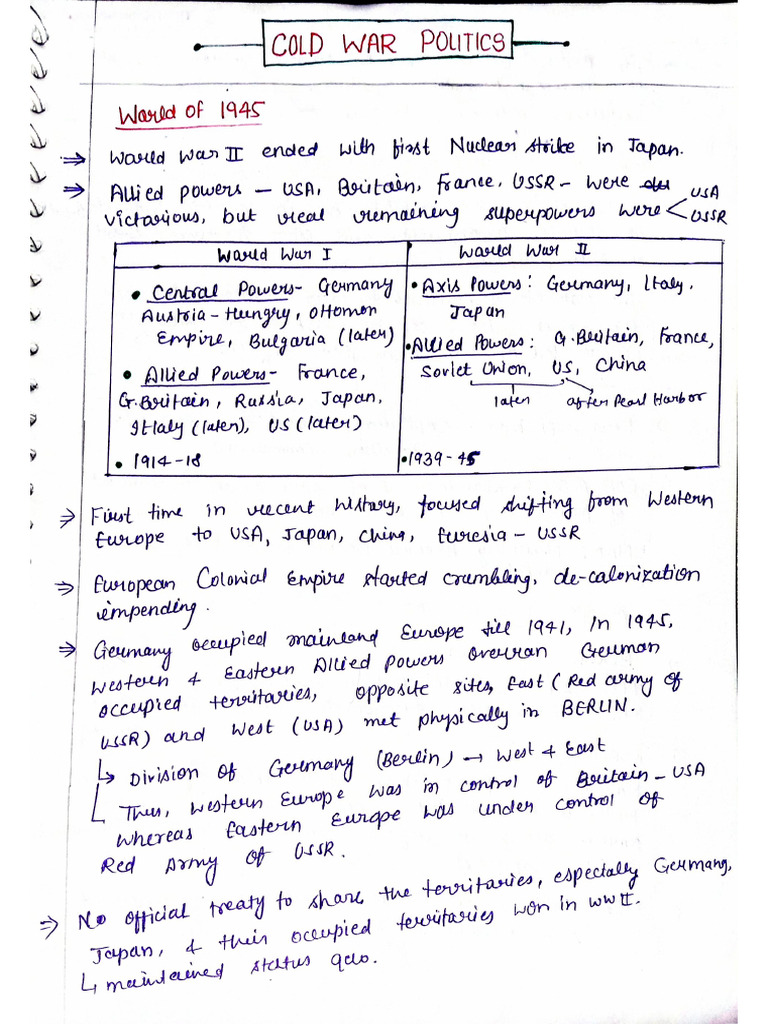 COLD WAR POLITICS
World OF 1945
⇒ World War II ended with first Nuclear strike in Japan.
⇒ Allied powers – USA, Britain, France, USSR – were
victorious, but real remaining superpowers were < USA
USSR
World War I
• Central Powers – Germany
Austria – Hungry, Ottomon
Empire, Bulgaria (later)
• Allied Powers – France,
G. Britain, Russia, Japan,
Itlaly (later), US (later)
• 1914-18
World War II
• Axis Powers : Germany, Italy,
Japan
• Allied Powers : G. Britain, France,
Soviet Union, US, China
later after Pearl Harbor
• 1939-45
⇒ First time in recent history, focused shifting from Western
Europe to USA, Japan, China, Euresia – USSR
⇒ European Colonial Empire started crumbling, de-colonization
impending.
⇒ Germany occupied mainland Europe till 1941, In 1945,
Western & Eastern Allied Powers overran German
occupied territories, opposite sites, East (Red army of
USSR) and West (USA) met physically in BERLIN.
↳ Division of Germany (Berlin) → West & East
Thus, Western Europe was in control of Britain – USA
whereas Eastern Europe was under control of
Red Army of USSR.
⇒ No official treaty to share the territories, especially Germany,
Japan, & their occupied territories won in WW II.
↳ maintained status quo.